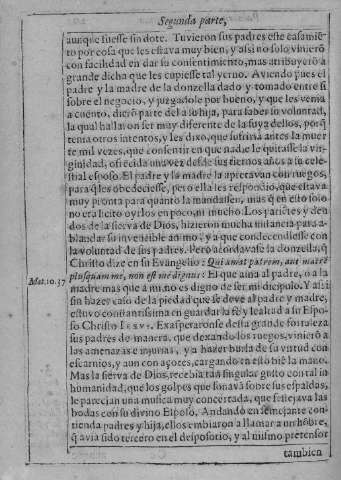 Segunda parte,
aunque fuesse sin dote. Tuvieron sus padres este casamiẽ-
to por cosa que les estava muy bien, y assi no solo vinierõ
con facilidad en dar su consentimiento, mas atribuyerõ a
grande dicha que les cupiesse tal yerno. Aviendo pues el
padre y la madre de la donzella dado y tomado entre si
sobre el negocio, y juzgadole por bueno, y que les venia
a cuento, dierõ parte del a su hija, para saber su voluntad,
la qual hallaron ser muy diferente de la suya dellos, porq̃
tenia otros intentos, y les dixo, que sufriria antes la muer
te mil vezes, que consentir en que nadie le quitasse la vir-
ginidad, ofrecida una vez desde sus tiernos años a su cele-
stial esposo. El padre y la madre la apretavan con ruegos,
para q̃ les obedeciesse, pero ella les respondio, que estava
muy pronta para quanto la mandassen, mas q̃ en esto solo
no era licito oyrlos en poco, ni mucho. Los parietes y deu
dos de la sierva de Dios, hizieron mucha instancia para a-
blandar su invencible animo, y a que condecendiesse con
la voluntad de sus padres. Pero acordavase la donzella, q̃
Christo dize en su Evangelio: Qui amat patrem, aut matrẽ
plusquam me, non est me dignus: El que ama al padre, o a la
Mat. 10. 37
madre mas que a mi, no es digno de ser mi dicipulo. Y assi
sin hazer caso de la piedad que se deve al padre y madre,
estuvo constantissima en guardar la fe y lealtad a su Espo-
so Christo IESVS. Exasperaronse desta grande fortaleza
sus padres de manera, que dexando los ruegos, vinierõ a
las amenazas e injurias, y a hazer burla de su virtud con
escarnios, y aun con açotes, cargando en esto biẽ la mano.
Mas la sierva de Dios recebia tan singular gusto con tal in
humanidad, que los golpes que sonavã sobre sus espaldas,
le parecian una musica muy concertada, que festejava las
bodas con su divino Esposo. Andando en semejante con-
tienda padres y hija, ellos embiaron a llamar a un hõbre,
q̃ avia sido tercero en el desposorio, y al mismo pretensor
tambien